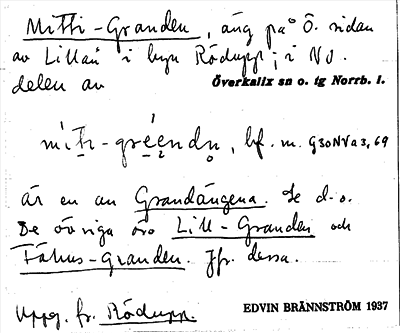 Mitti-Granden, äng på Ö. sidan
av Lillån i byn Rödupp; i NV.
delen av Överkalix sn o. tg Norrb. l.
mìth-gréendn, bf. m. G30NVa3,69
är en av Grandängena. Se d.o.
De övriga äro Lill-Granden och
Fähus-Granden. Jfr. dessa.
Uppg. fr. Rödupp.
EDVIN BRÄNNSTRÖM 1937